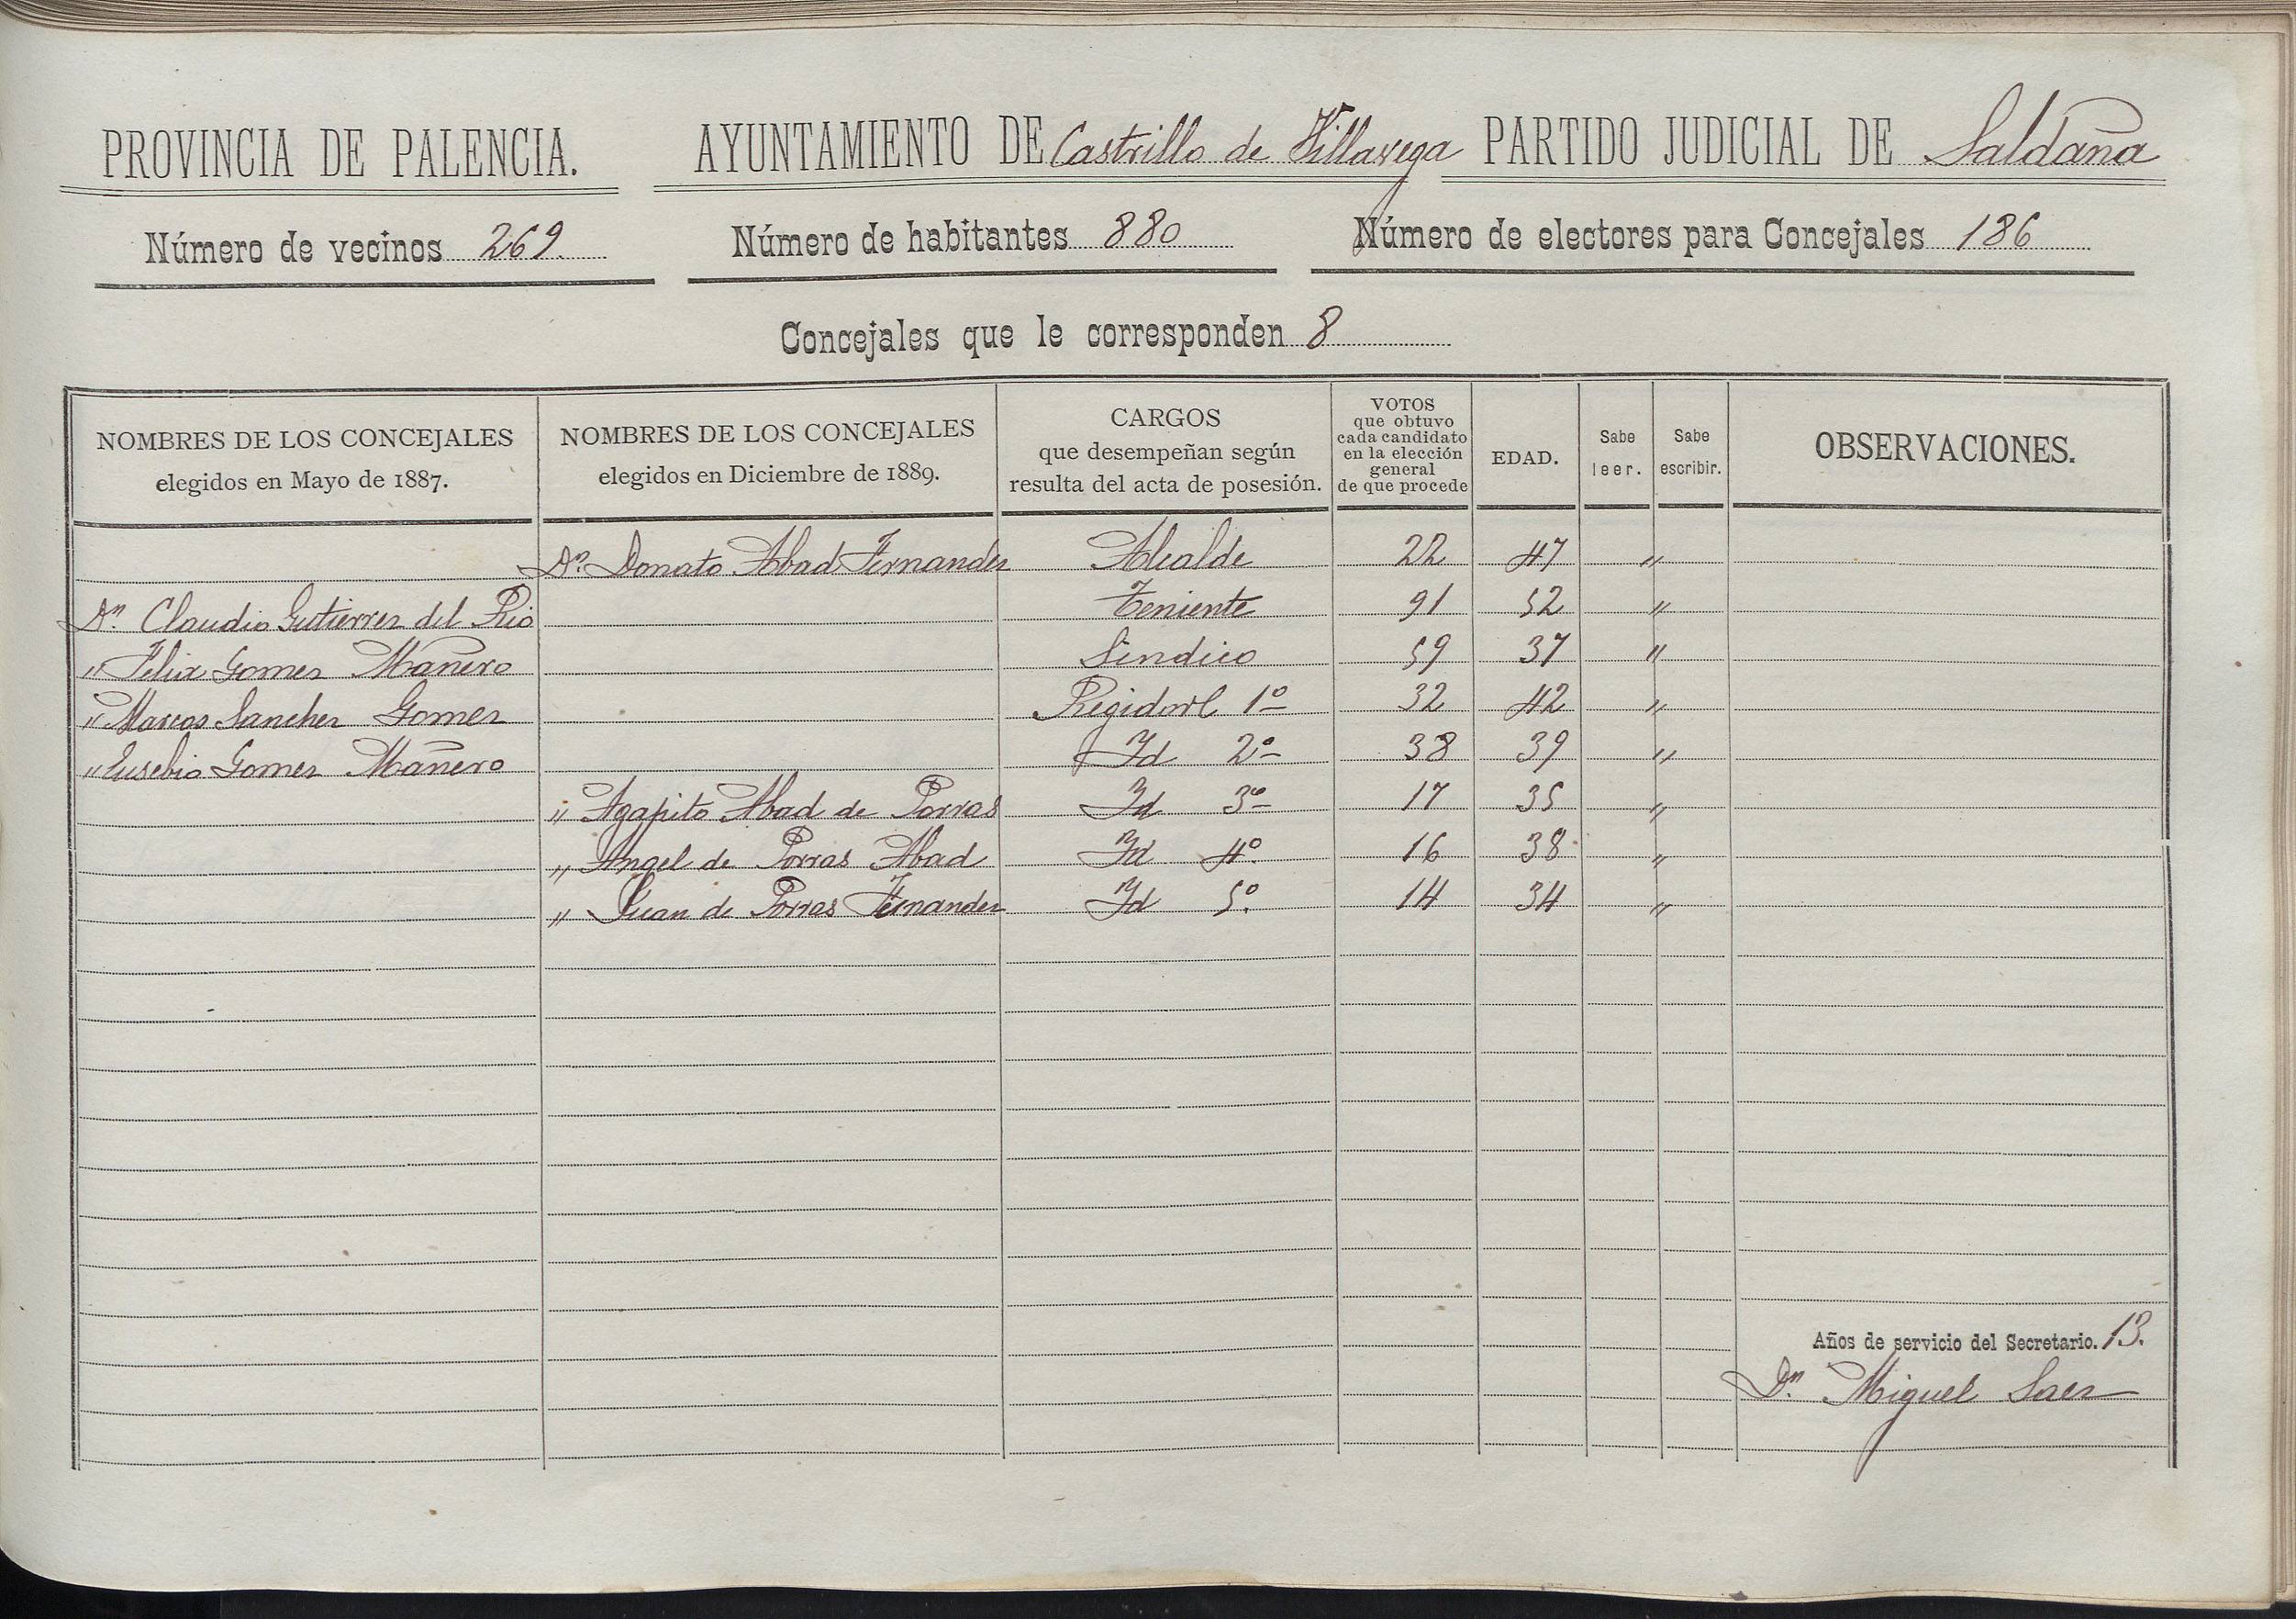 PROVINCIA DE PALENCIA. AYUNTAMIENTO DE Castrillo de Villavega PARTIDO JUDICIAL DE Saldaña
Número de vecinos 269. Número de habitantes 880 Número de electores para Concejales 186
Concejales que le corresponden 8
NOMBRES DE LOS CONCEJALES elegidos en Mayo de 1887. NOMBRES DE LOS CONCEJALES elegidos en Diciembre de 1889. CARGOS que desempeñan según resulta del acta de posesión. VOTOS que obtuvo cada candidato en la elección general de que procede EDAD. Sabe leer. Sabe escribir. OBSERVACIONES.
Dn. Donato Abad Fernandez Alcalde 22 47 "
Dn. Claudio Gutierrez del Rio Teniente 91 52 "
" Felix Gomez Mañero Sindico 59 37 "
" Marcos Sanchez Gomez Regidorl 1º 32 42 "
" Eusebio Gomez Mañero Id 2º 38 39 "
" Agapito Abad de Porras Id 3º 17 35 "
" Angel de Porras Abad Id 4º 16 38 "
" Juan de Porras Fernandez Id 5º 14 34 "
Años de servicio del Secretario. 13.
Dn. Miguel Saez